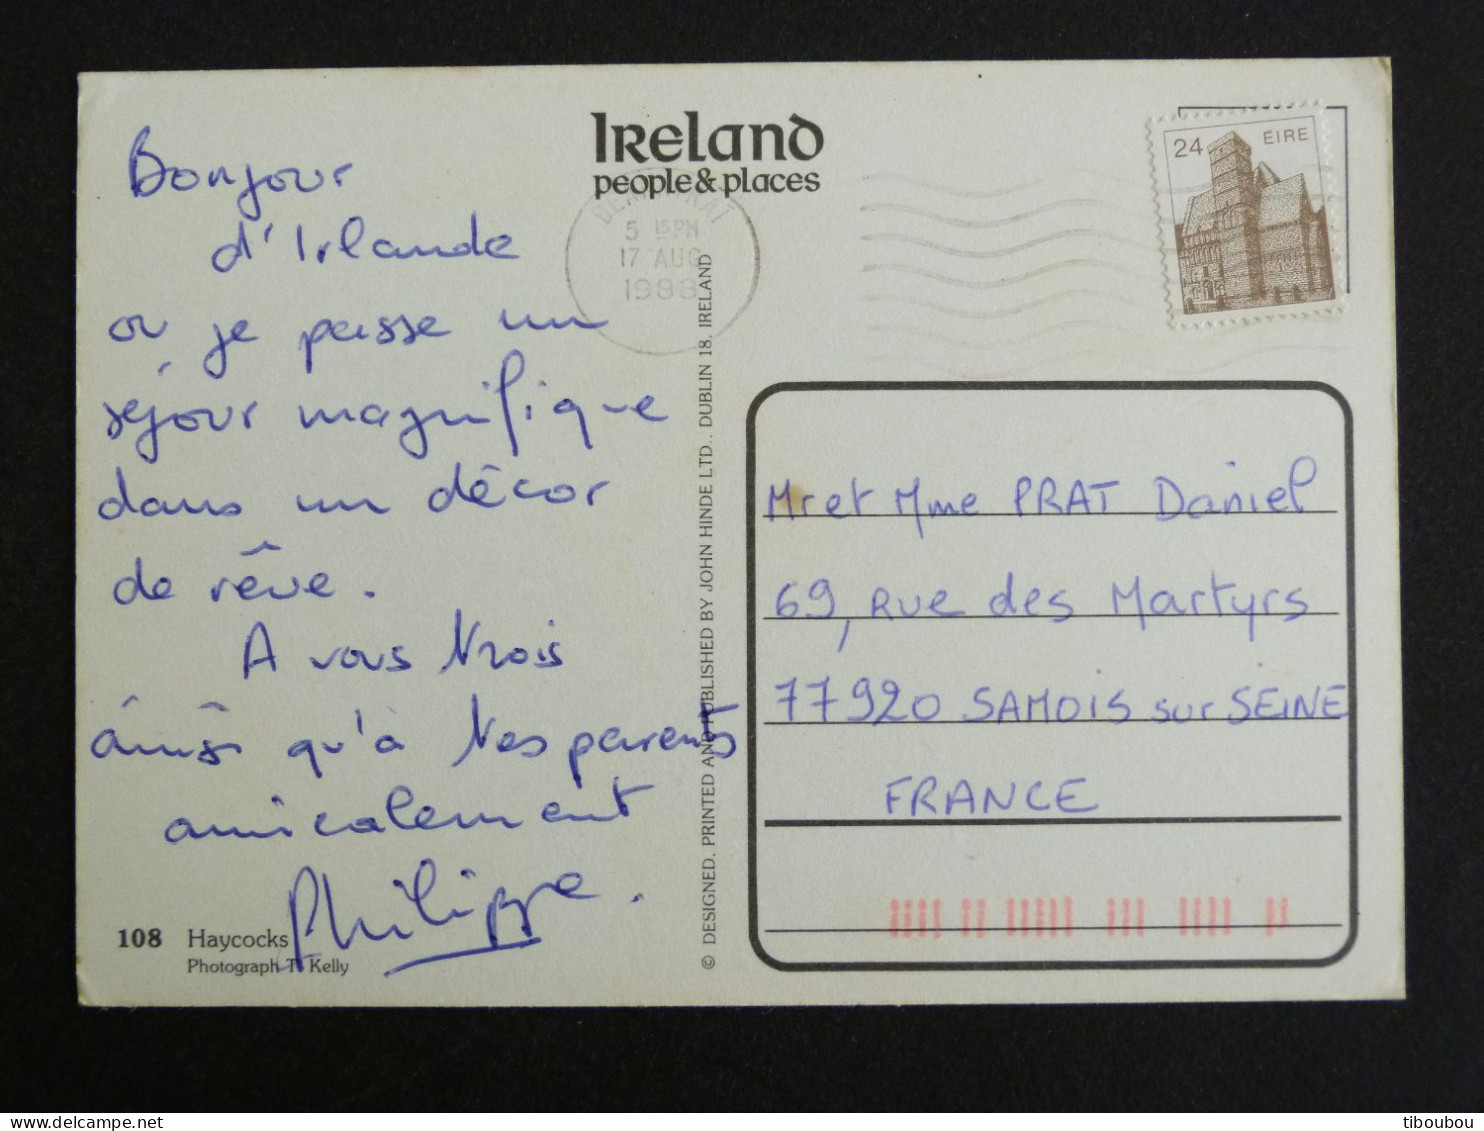 Ireland
people & places
24 ÉIRE
5 15PM
17 AUG
1988
Bonjour
d'Irlande
ou je passe un
séjour magnifique
dans un décor
de rêve.
A vous trois
ainsi qu'à tes parents
amicalement
Philippe.
108 Haycocks
Photograph T. Kelly
© DESIGNED, PRINTED AND PUBLISHED BY JOHN HINDE LTD., DUBLIN 18, IRELAND
Mr et Mme PRAT Daniel
69, Rue des Martyrs
77920 SAMOIS sur SEINE
FRANCE
tiboubou